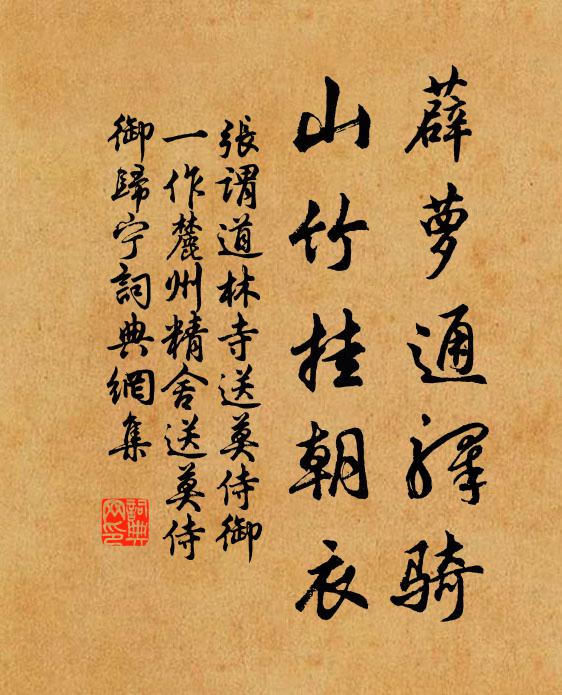 薜萝通驿骑
山竹挂朝衣
張谓道林寺送莫侍御
一作麓州精舍送莫侍
御歸宁詞典網集
詞典
网印